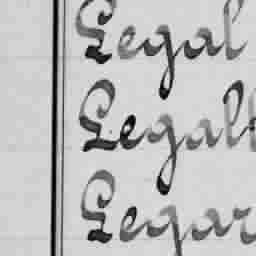 Legal
Legalt
Legar